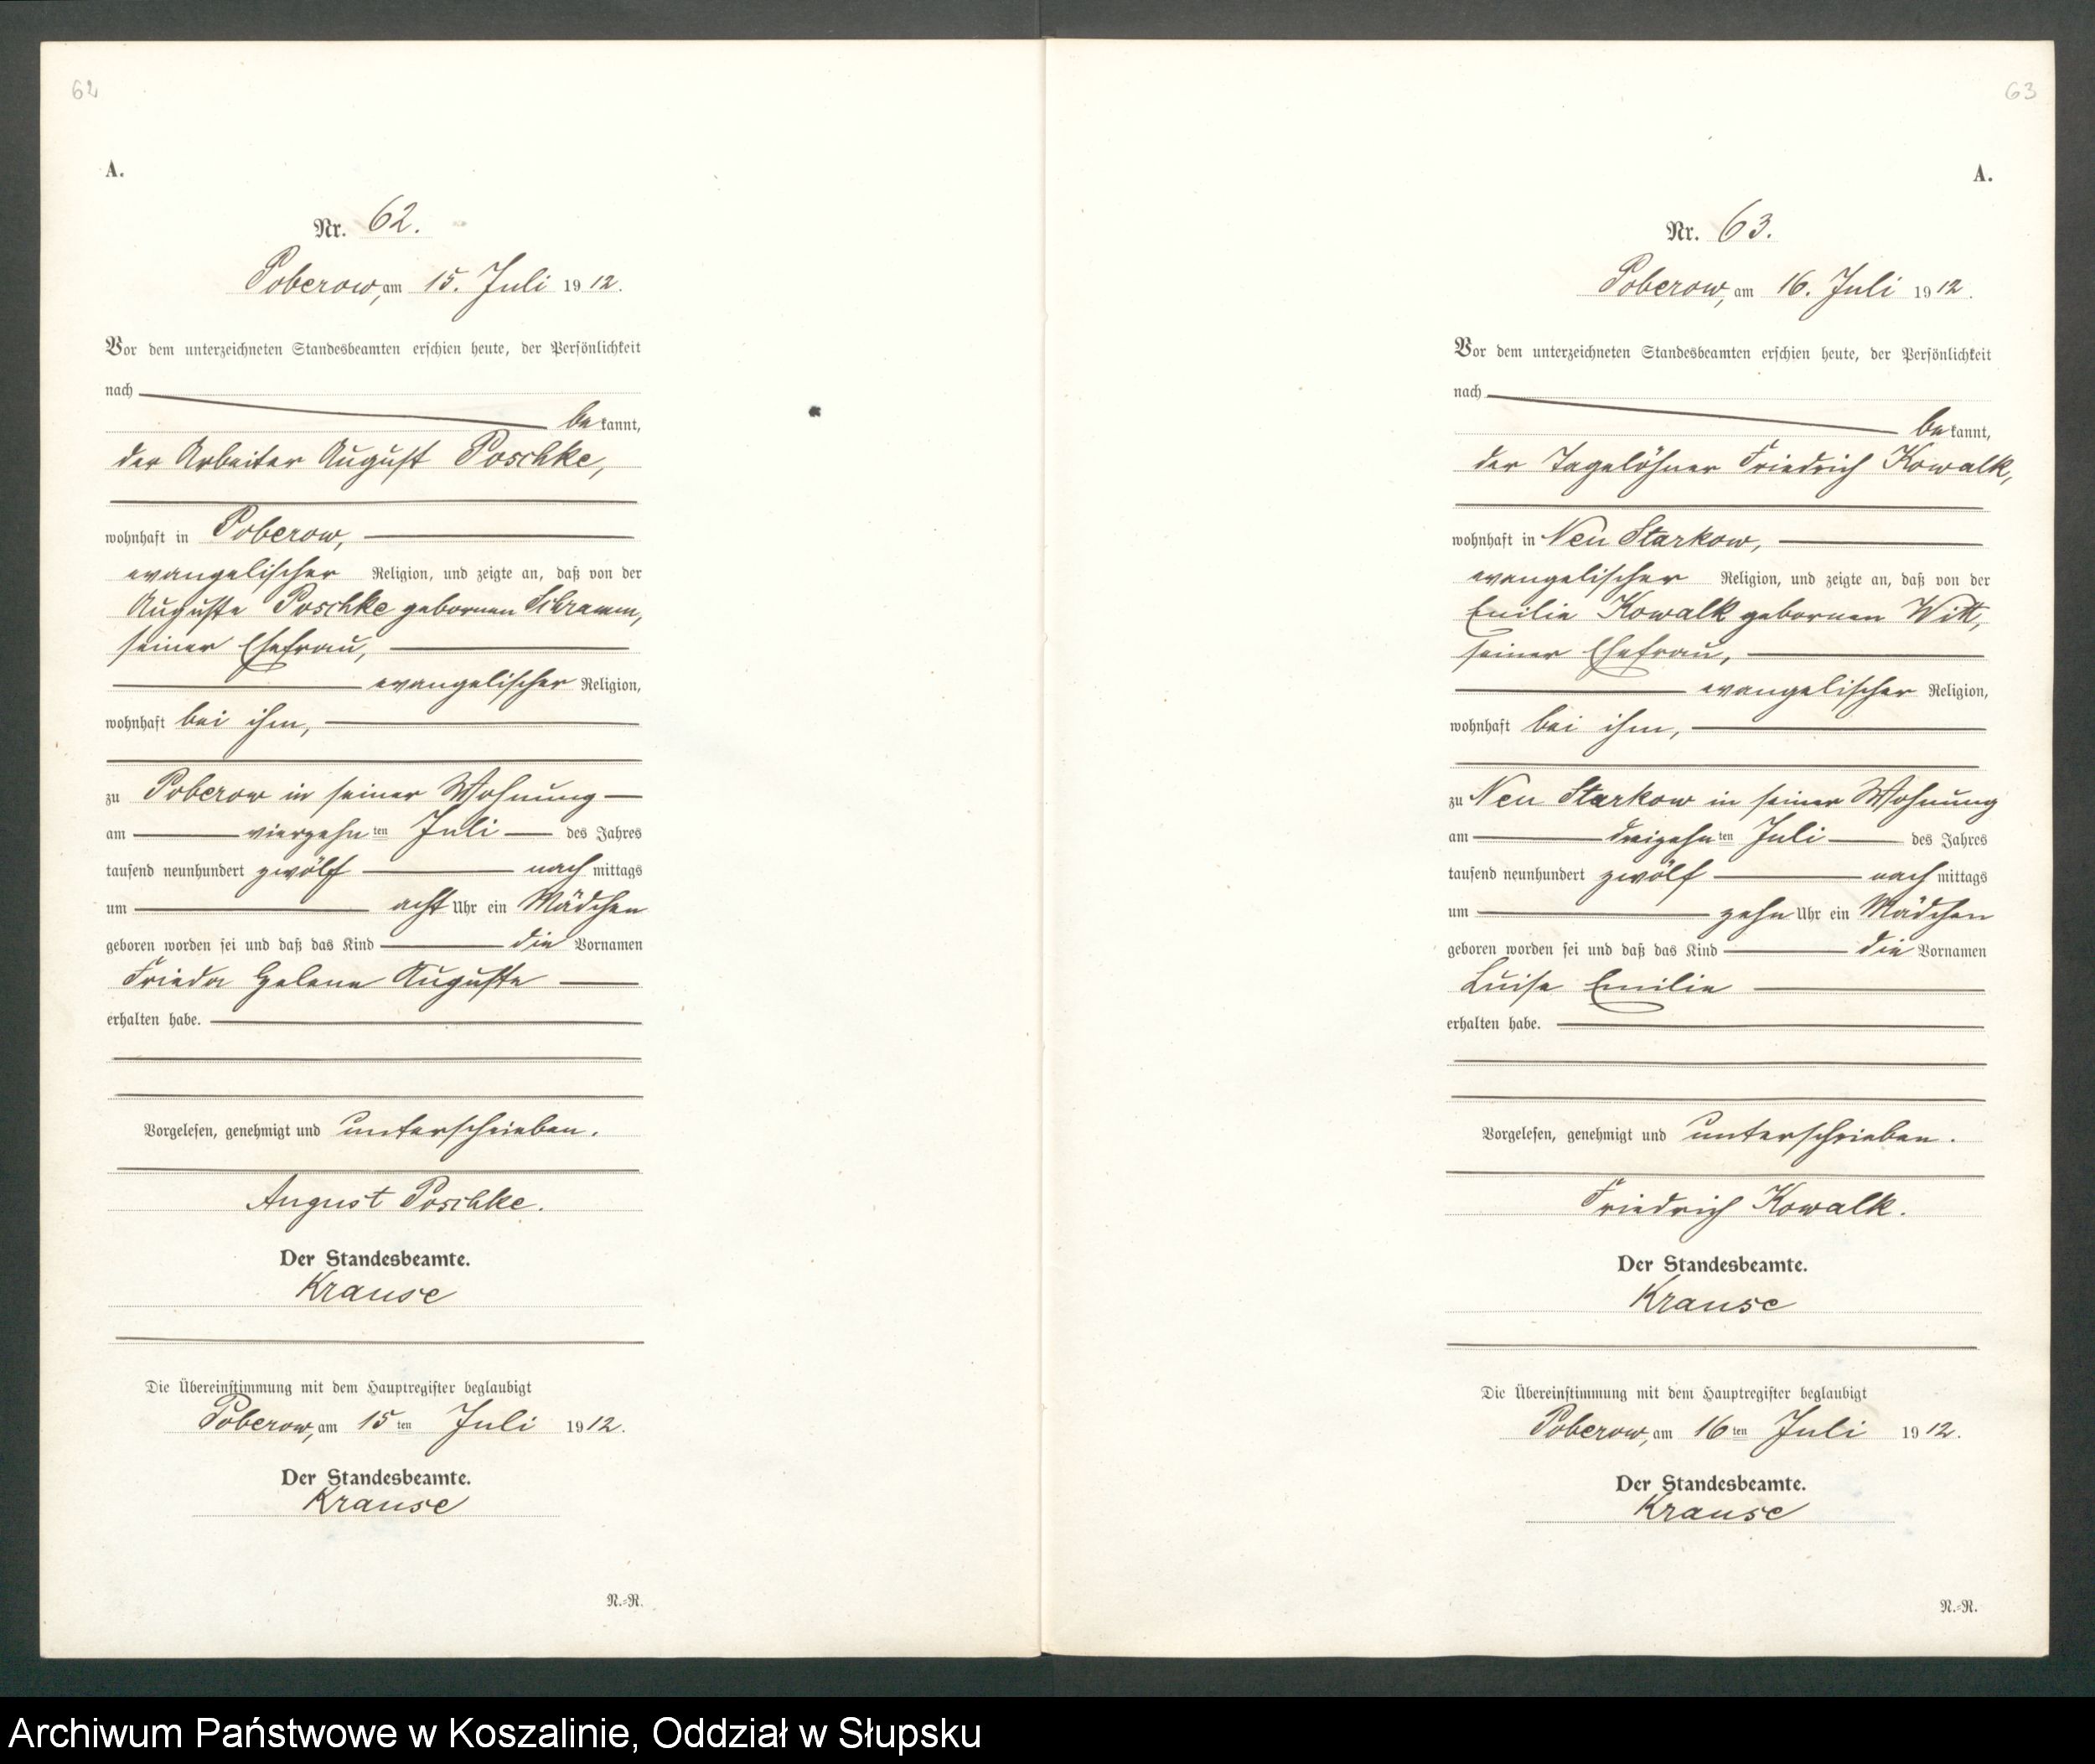 62
A.
Nr. 62.
Poberow, am 15. Juli 1912.
Vor dem unterzeichneten Standesbeamten erschien heute, der Persönlichkeit
nach
bekannt,
der Arbeiter August Poschke,
wohnhaft in Poberow,
evangelischer Religion, und zeigte an, daß von der
Auguste Poschke gebornen Schramm,
seiner Ehefrau,
evangelischer Religion,
wohnhaft bei ihm,
zu Poberow in seiner Wohnung
am vierzehnten Juli des Jahres
tausend neunhundert zwölf nachmittags
um acht Uhr ein Mädchen
geboren worden sei und daß das Kind die Vornamen
Frieda Helene Auguste
erhalten habe.
Vorgelesen, genehmigt und unterschrieben.
August Poschke.
Der Standesbeamte.
Krause
Die Übereinstimmung mit dem Hauptregister beglaubigt
Poberow, am 15ten Juli 1912.
Der Standesbeamte.
Krause
N.=R.
63
A.
Nr. 63.
Poberow, am 16. Juli 1912.
Vor dem unterzeichneten Standesbeamten erschien heute, der Persönlichkeit
nach
bekannt,
der Tagelöhner Friedrich Kowalk,
wohnhaft in Neu Starkow,
evangelischer Religion, und zeigte an, daß von der
Emilie Kowalk gebornen Witt,
seiner Ehefrau,
evangelischer Religion,
wohnhaft bei ihm,
zu Neu Starkow in seiner Wohnung
am dreizehnten Juli des Jahres
tausend neunhundert zwölf nachmittags
um zehn Uhr ein Mädchen
geboren worden sei und daß das Kind die Vornamen
Luise Emilie
erhalten habe.
Vorgelesen, genehmigt und unterschrieben.
Friedrich Kowalk.
Der Standesbeamte.
Krause
Die Übereinstimmung mit dem Hauptregister beglaubigt
Poberow, am 16ten Juli 1912.
Der Standesbeamte.
Krause
N.=R.
Archiwum Państwowe w Koszalinie, Oddział w Słupsku